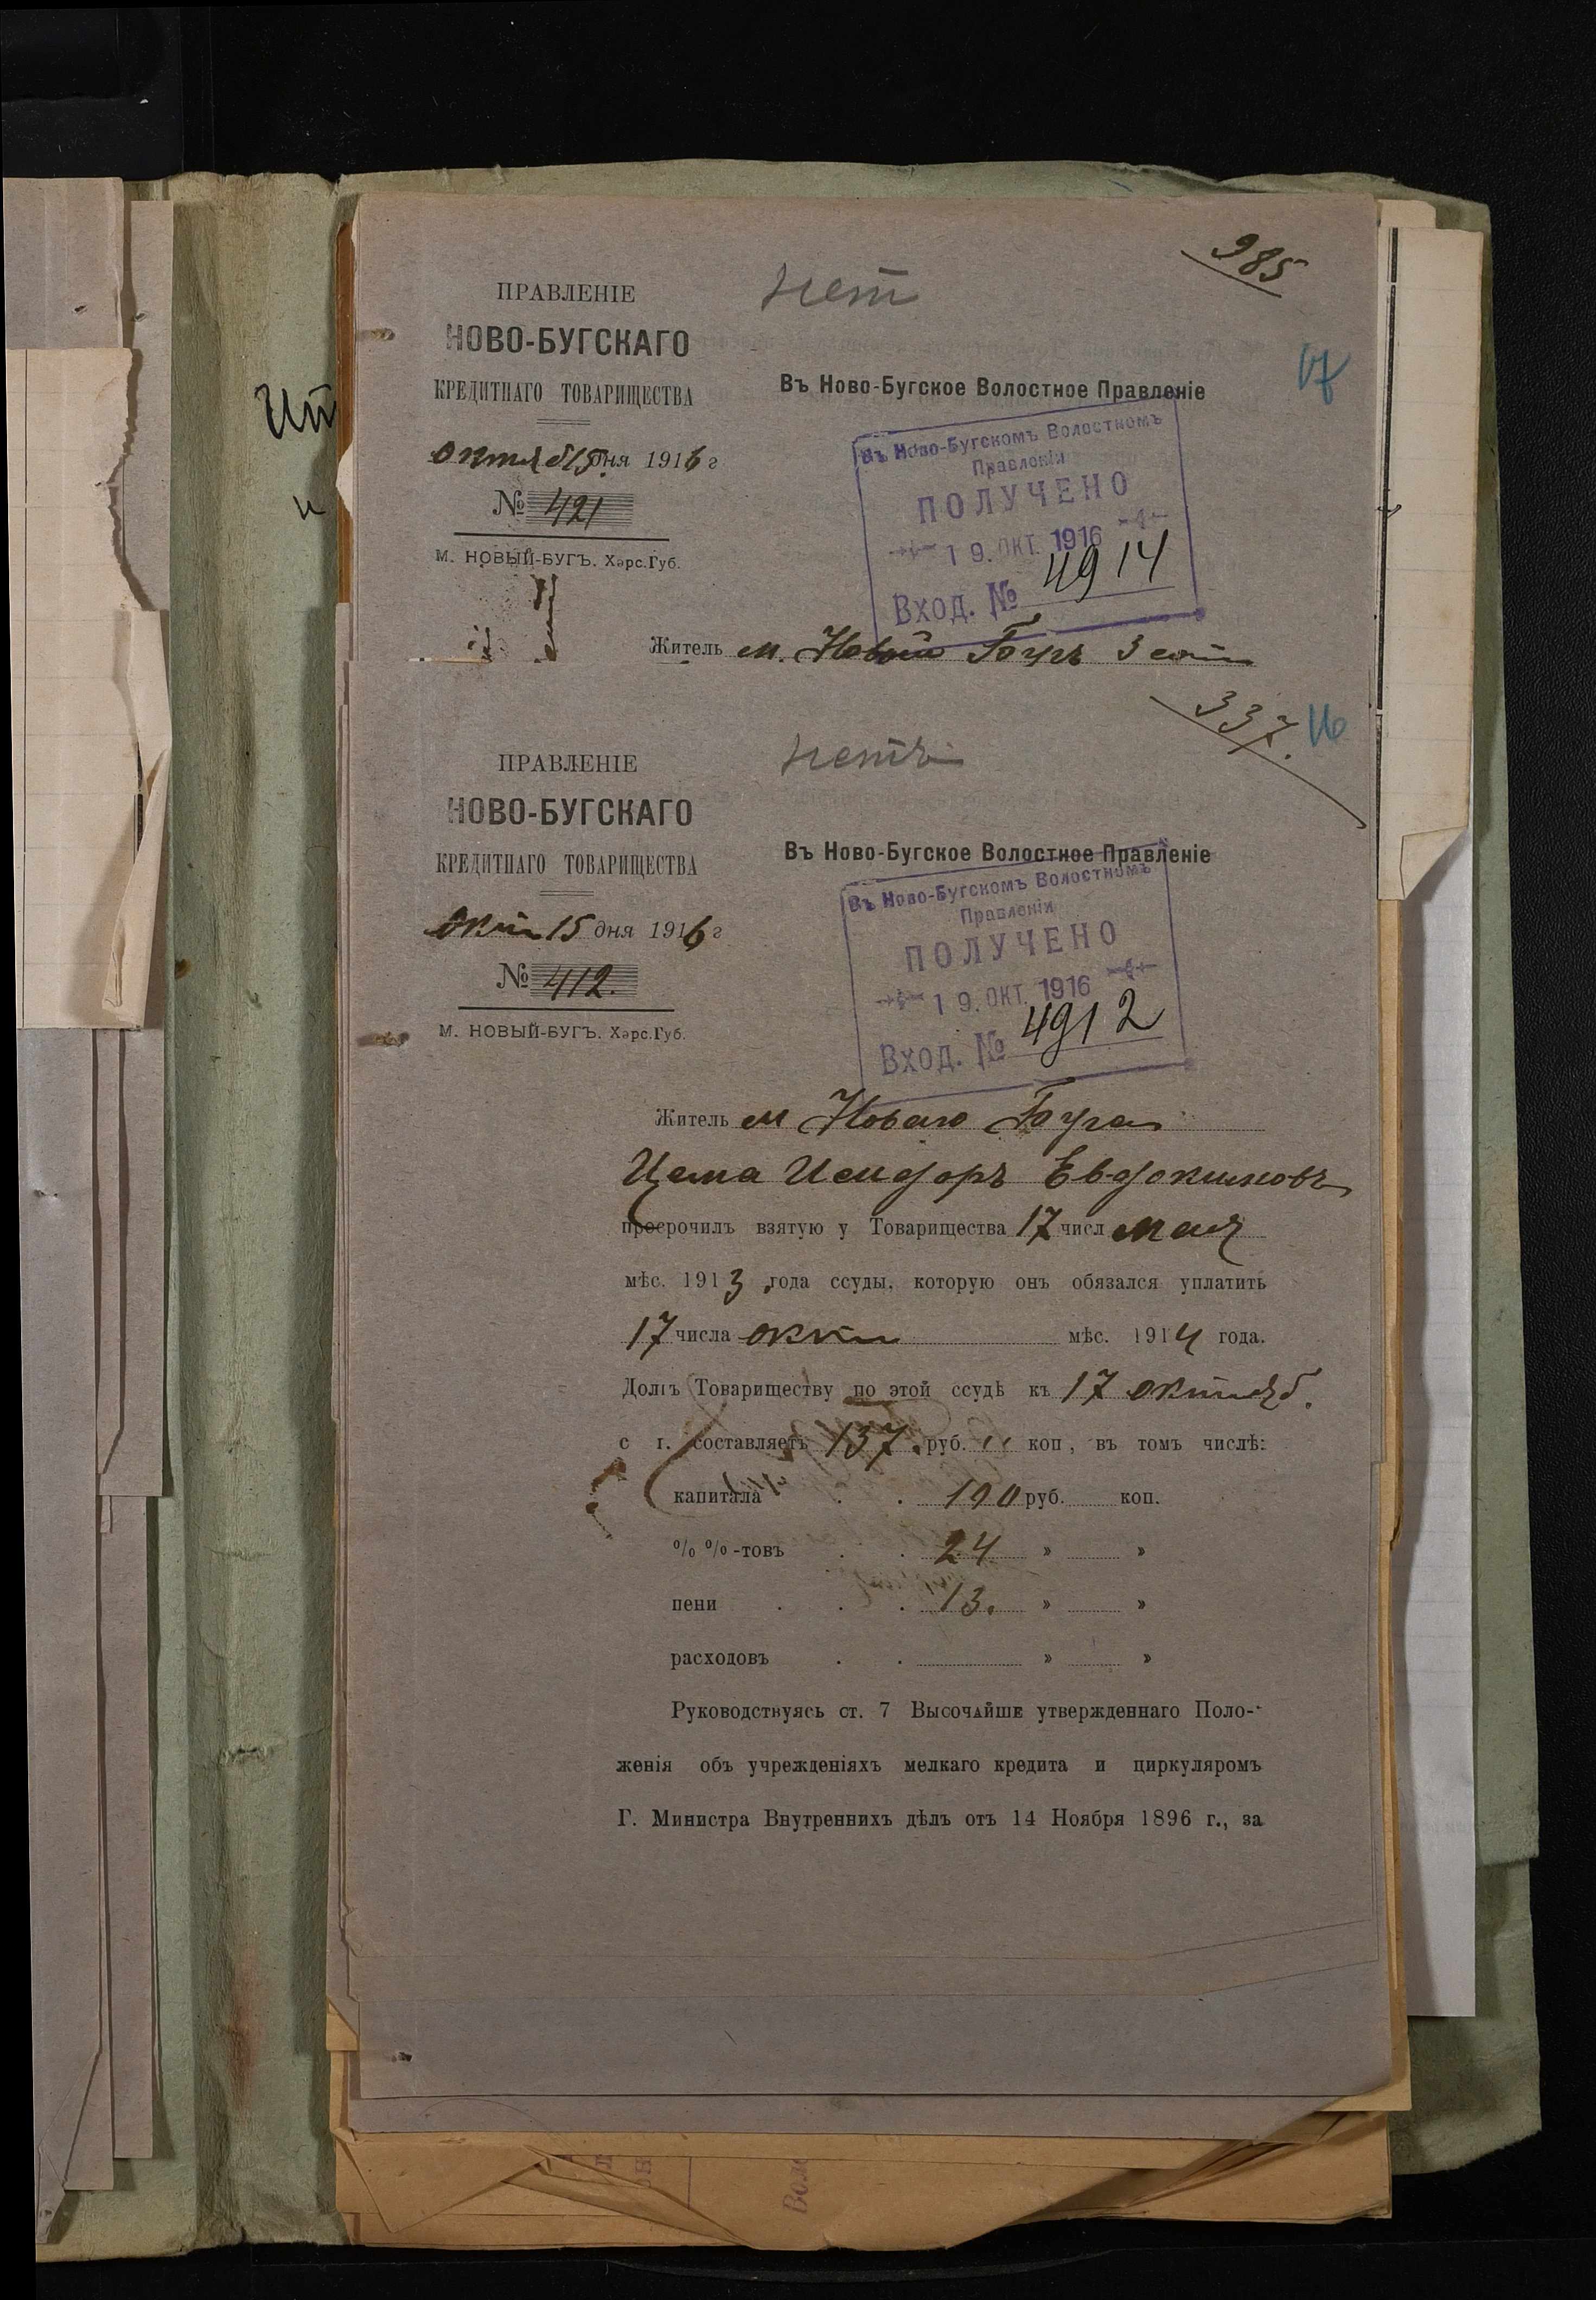 985
нет
ПРАВЛЕНІЕ
НОВО-БУГСКАГО
КРЕДИТНАГО ТОВАРИЩЕСТВА
Въ Ново-Бугское Волостное Правленіе
17
Октяб 15 дня 1916 г
№ 421
М. НОВЫЙ-БУГЪ. Хэрс.Губ.
Въ Ново-Бугскомъ Волостномъ
Правленіи
ПОЛУЧЕНО
19. ОКТ. 1916
Вход. № 4914
Житель м. Новый Бугъ 3 сотн
337.
16
нетъ
ПРАВЛЕНІЕ
НОВО-БУГСКАГО
КРЕДИТНАГО ТОВАРИЩЕСТВА
Въ Ново-Бугское Волостное Правленіе
Окт 15 дня 1916 г
№ 412.
М. НОВЫЙ-БУГЪ. Хэрс.Губ.
Въ Ново-Бугскомъ Волостномъ
Правленіи
ПОЛУЧЕНО
19. ОКТ. 1916
Вход. № 4912
Житель м Новаго Буга
Цема Исидоръ Евдокимовъ
просрочилъ взятую у Товарищества 17 числ мая
мѣс. 1913 года ссуды, которую онъ обязался уплатить
17 числа окт мѣс. 1914 года.
Долгъ Товариществу по этой ссудѣ къ 17 октяб.
с г. составляетъ 137. руб. " коп, въ томъ числѣ:
капитала . . 100 руб. коп.
% % -товъ . . 24 » »
пени . . . 13. » »
расходовъ . . » »
Руководствуясь ст. 7 Высочайше утвержденнаго Поло-
женія объ учрежденіяхъ мелкаго кредита и циркуляромъ
Г. Министра Внутреннихъ дѣлъ отъ 14 Ноября 1896 г., за